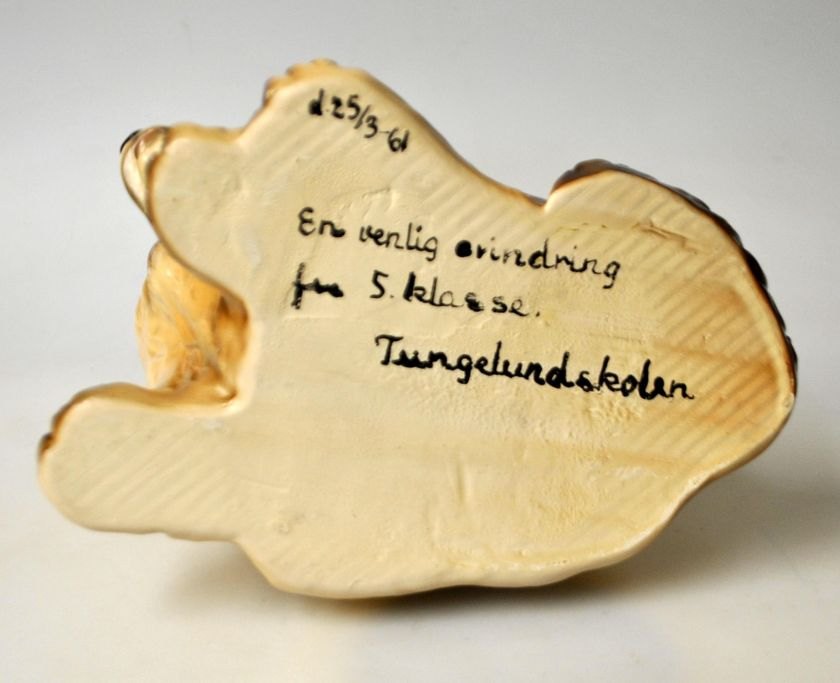 d. 25/3-61
En venlig erindring
fra 5. klasse.
Tungelundskolen